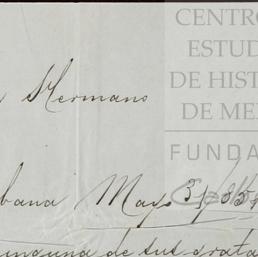 CENTRO
ESTUD
DE HIST
DE ME
FUNDA
Hermano
bana Mayo 31/85
ninguna de sus grata